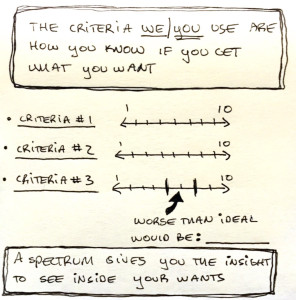 THE CRITERIA WE/YOU USE ARE
HOW YOU KNOW IF YOU GET
WHAT YOU WANT
1 10
• CRITERIA #1
1 10
• CRITERIA #2
1 10
• CRITERIA #3
WORSE THAN IDEAL
WOULD BE: ______
A SPECTRUM GIVES YOU THE INSIGHT
TO SEE INSIDE YOUR WANTS